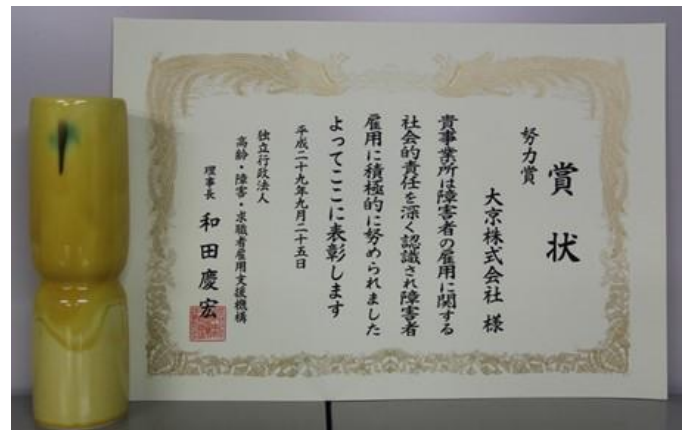 賞状
努力賞
大京株式会社 様
貴事業所は障害者の雇用に関する
社会的責任を深く認識され障害者
雇用に積極的に努められました
よってここに表彰します
平成二十九年九月二十五日
独立行政法人
高齢・障害・求職者雇用支援機構
理事長 和田慶宏